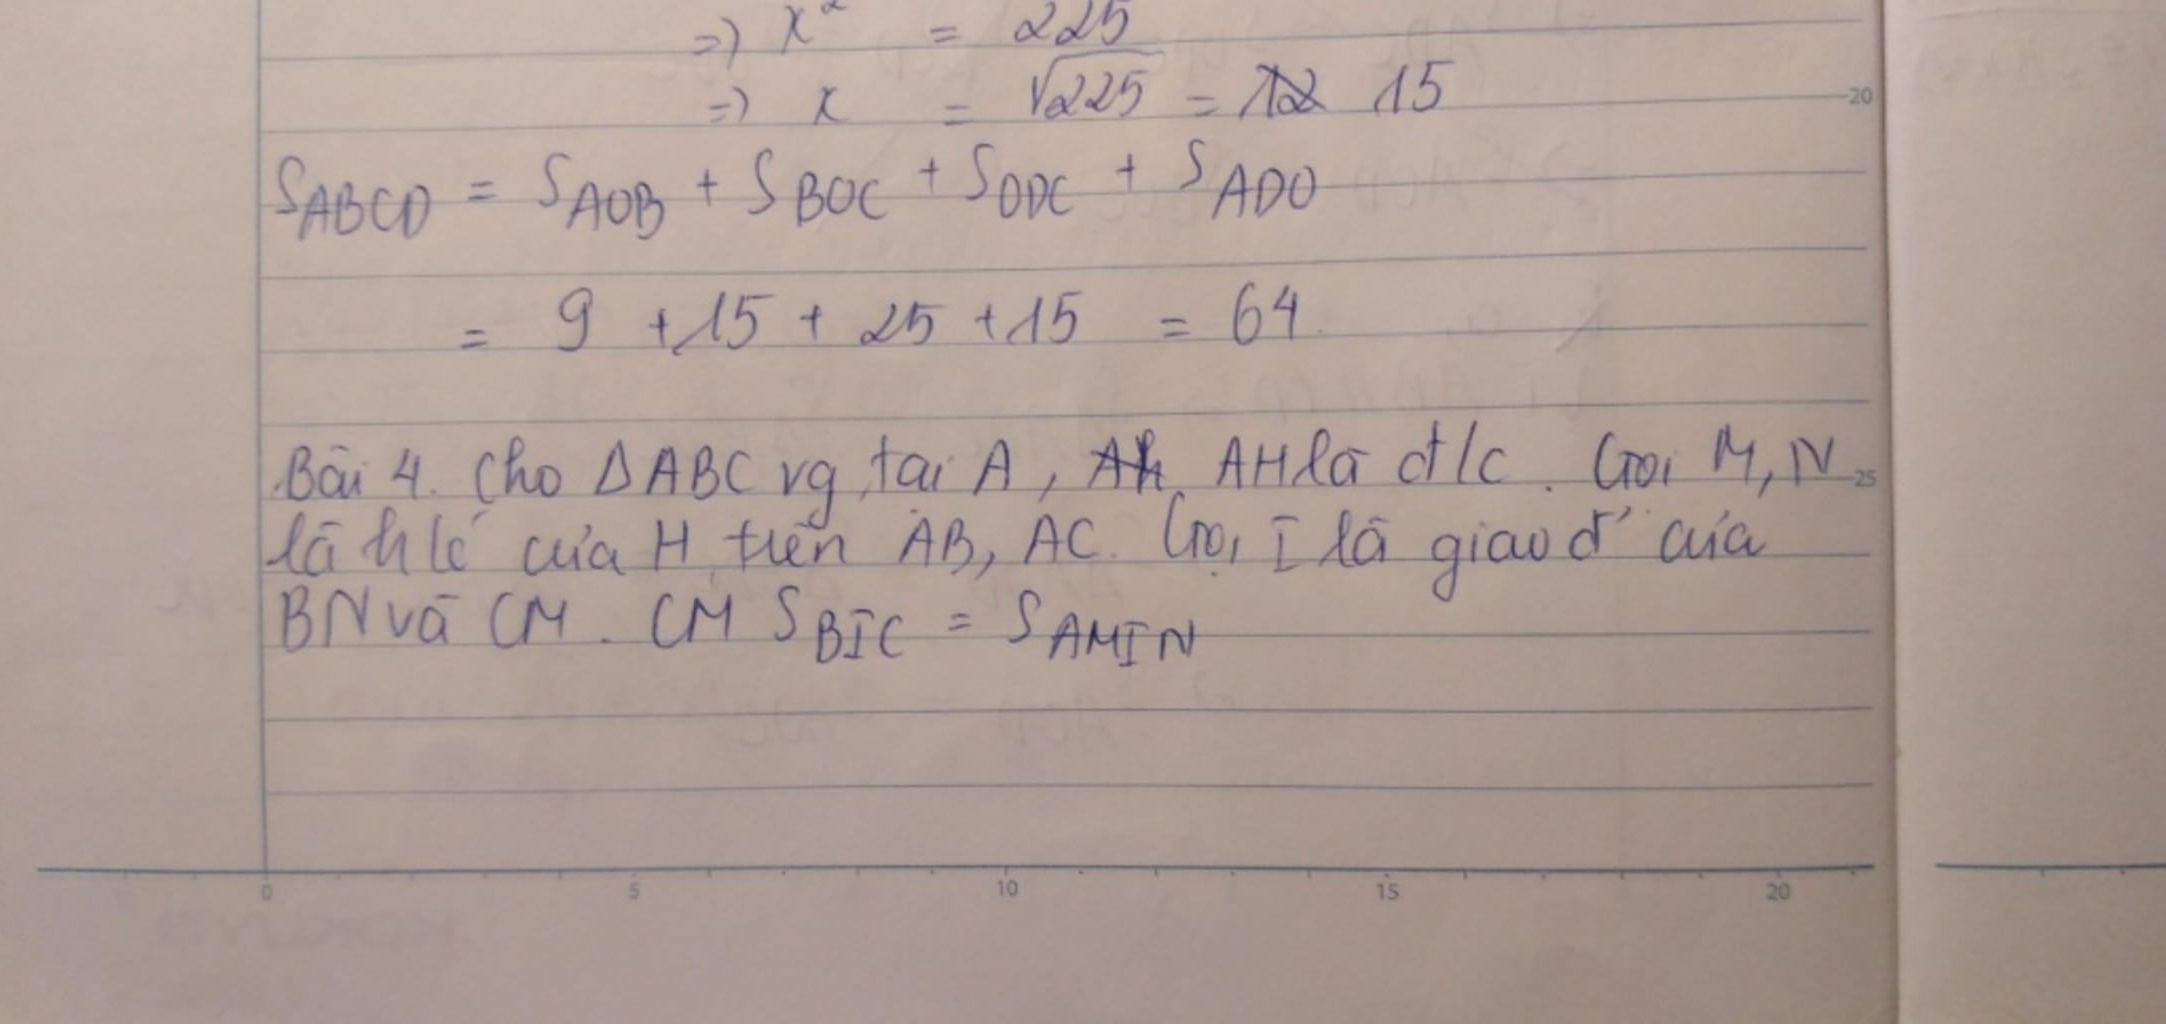 => x² = 225
=> x = √225 = 12 15
20
S_ABCD = S_AOB + S_BOC + S_ODC + S_ADO
= 9 + 15 + 25 + 15 = 64.
Bài 4. Cho ΔABC vg tại A, Ah AH là đ/c. Gọi M, N
25
là h/c của H trên AB, AC. Gọi I là giao đ' của
BN và CM. CM S_BIC = S_AMIN
0 5 10 15 20